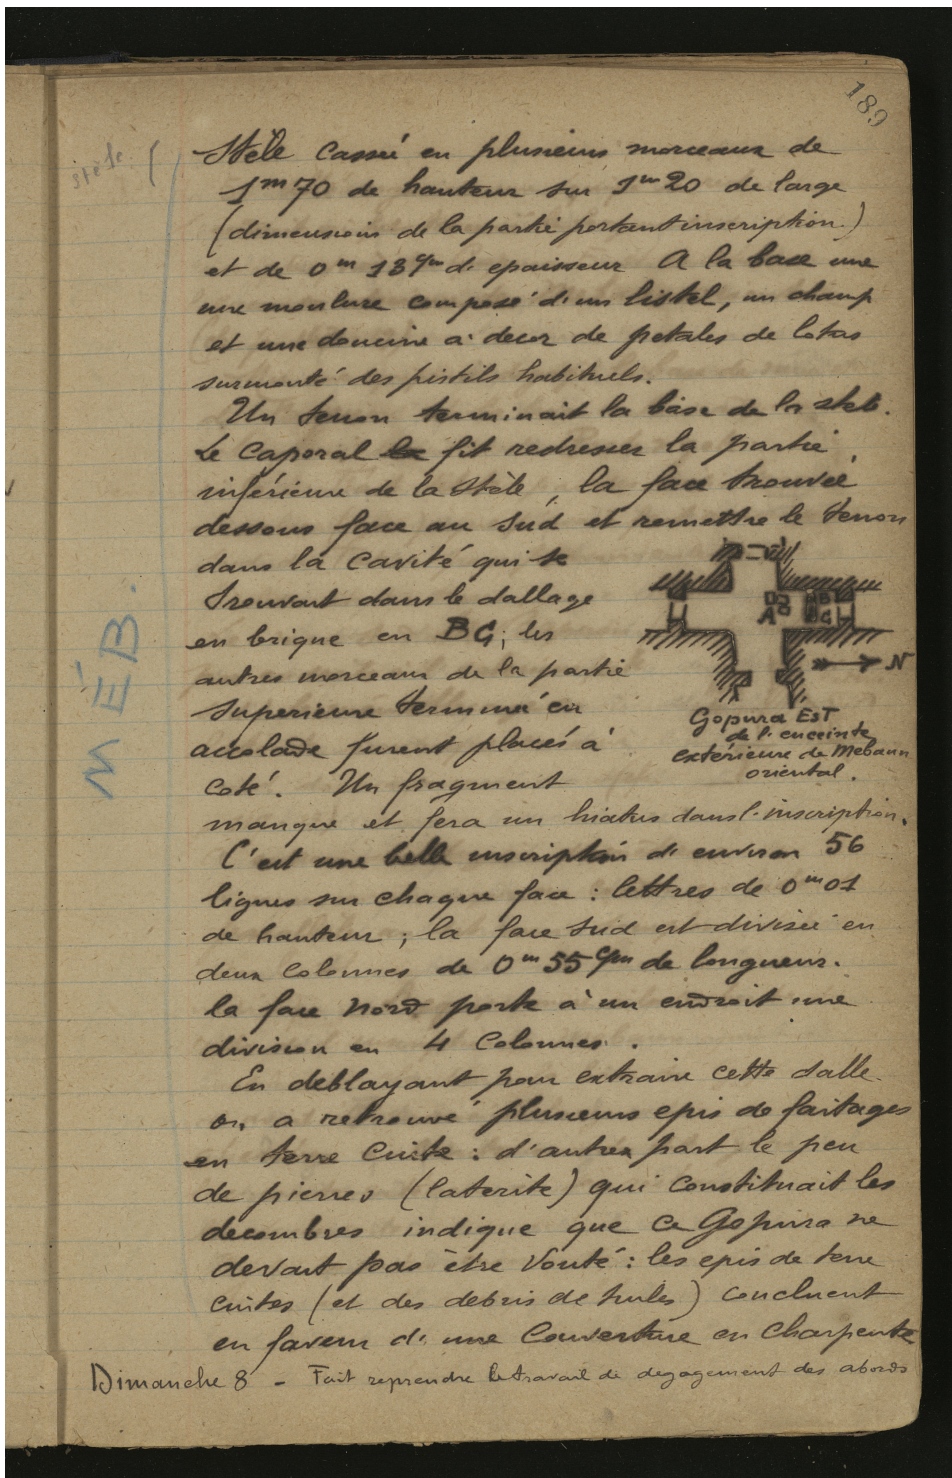 189
stèle (
Stèle cassé en plusieurs morceaux de
1m70 de hauteur sur 1m20 de large
(dimensions de la partie portant inscription.)
et de 0m 13 d'epaisseur A la base une
une moulure composé d'un listel, un champ
et une doucine à decor de petales de lotus
surmonté des pistils habituels.
Un tenon terminait la base de la stele.
Le Caporal fit redresser la partie
inférieure de la Stèle, la face trouvée
dessous face au Sud et remettre le tenon
dans la cavité qui se
trouvait dans le dallage
en brique en BC; les
autres morceaux de la partie
superieure terminé en
accolade furent placés à
coté. Un fragment
manque et fera un hiatus dans l'inscription.
A
B
C
N
Gopura EST
de l'enceinte
extérieure de Mebaun
oriental.
MÉB.
C'est une belle inscription d'environ 56
lignes sur chaque face : lettres de 0m01
de hauteur ; la face Sud est divisée en
deux colonnes de 0m55 de longueur.
la face Nord porte à un endroit une
division en 4 colonnes.
En deblayant pour extraire cette dalle
on a retrouvé plusieurs epis de faitages
en terre cuite : d'autre part le peu
de pierres (laterite) qui constituait les
decombres indique que ce Gopura ne
devait pas être vouté : les epis de terre
cuites (et des debris de tuiles) concluent
en faveur d'une Couverture en charpente
Dimanche 8 - Fait reprendre le travail de degagement des abords